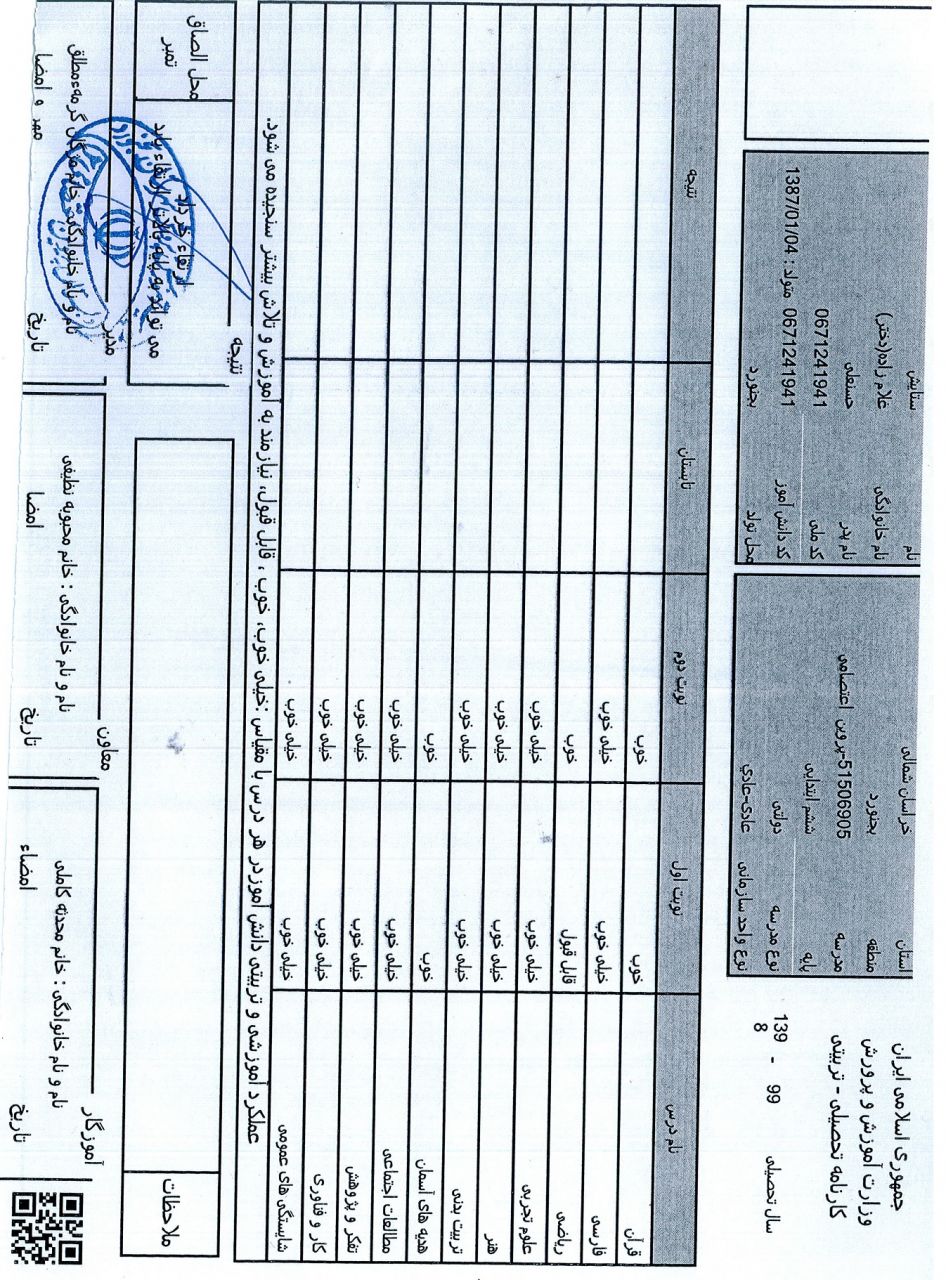 جمهوری اسلامی ایران
وزارت آموزش و پرورش
کارنامه تحصیلی - تربیتی
139 - 99 سال تحصیلی
8
استان خراسان شمالی
منطقه بجنورد
مدرسه 51506905-پروین اعتصامی
پایه ششم ابتدایی
نوع مدرسه دولتی
نوع واحد سازمانی عادی-عادی
نام ستایش
نام خانوادگی غلام زاده(دختر)
نام پدر حسنعلی
کد ملی 0671241941
کد دانش آموز 0671241941 متولد : 1387/01/04
محل تولد بجنورد
نام درس نوبت اول نوبت دوم تابستان نتیجه
قرآن خوب خوب
فارسی خیلی خوب خیلی خوب
ریاضی قابل قبول خوب
علوم تجربی خیلی خوب خیلی خوب
هنر خیلی خوب خیلی خوب
تربیت بدنی خیلی خوب خیلی خوب
هدیه های آسمان خوب خوب
مطالعات اجتماعی خیلی خوب خیلی خوب
تفکر و پژوهش خیلی خوب خیلی خوب
کار و فناوری خیلی خوب خیلی خوب
شایستگی های عمومی خیلی خوب خیلی خوب
عملکرد آموزشی و تربیتی دانش آموز در هر درس با مقیاس :خیلی خوب، خوب ، قابل قبول، نیازمند به آموزش و تلاش بیشتر سنجیده می شود.
ملاحظات
نتیجه
ارتقاء خرداد
می تواند به پایه بالاتر ارتقاء یابد
محل الصاق
تمبر
آموزگار
نام و نام خانوادگی : خانم محدثه کاملی
امضاء تاریخ
معاون
نام و نام خانوادگی : خانم محبوبه نظیفی
امضا تاریخ
مدیر
نام و نام خانوادگی: خانم مژگان گرمه‌ء‌مطلق
مهر و امضا تاریخ